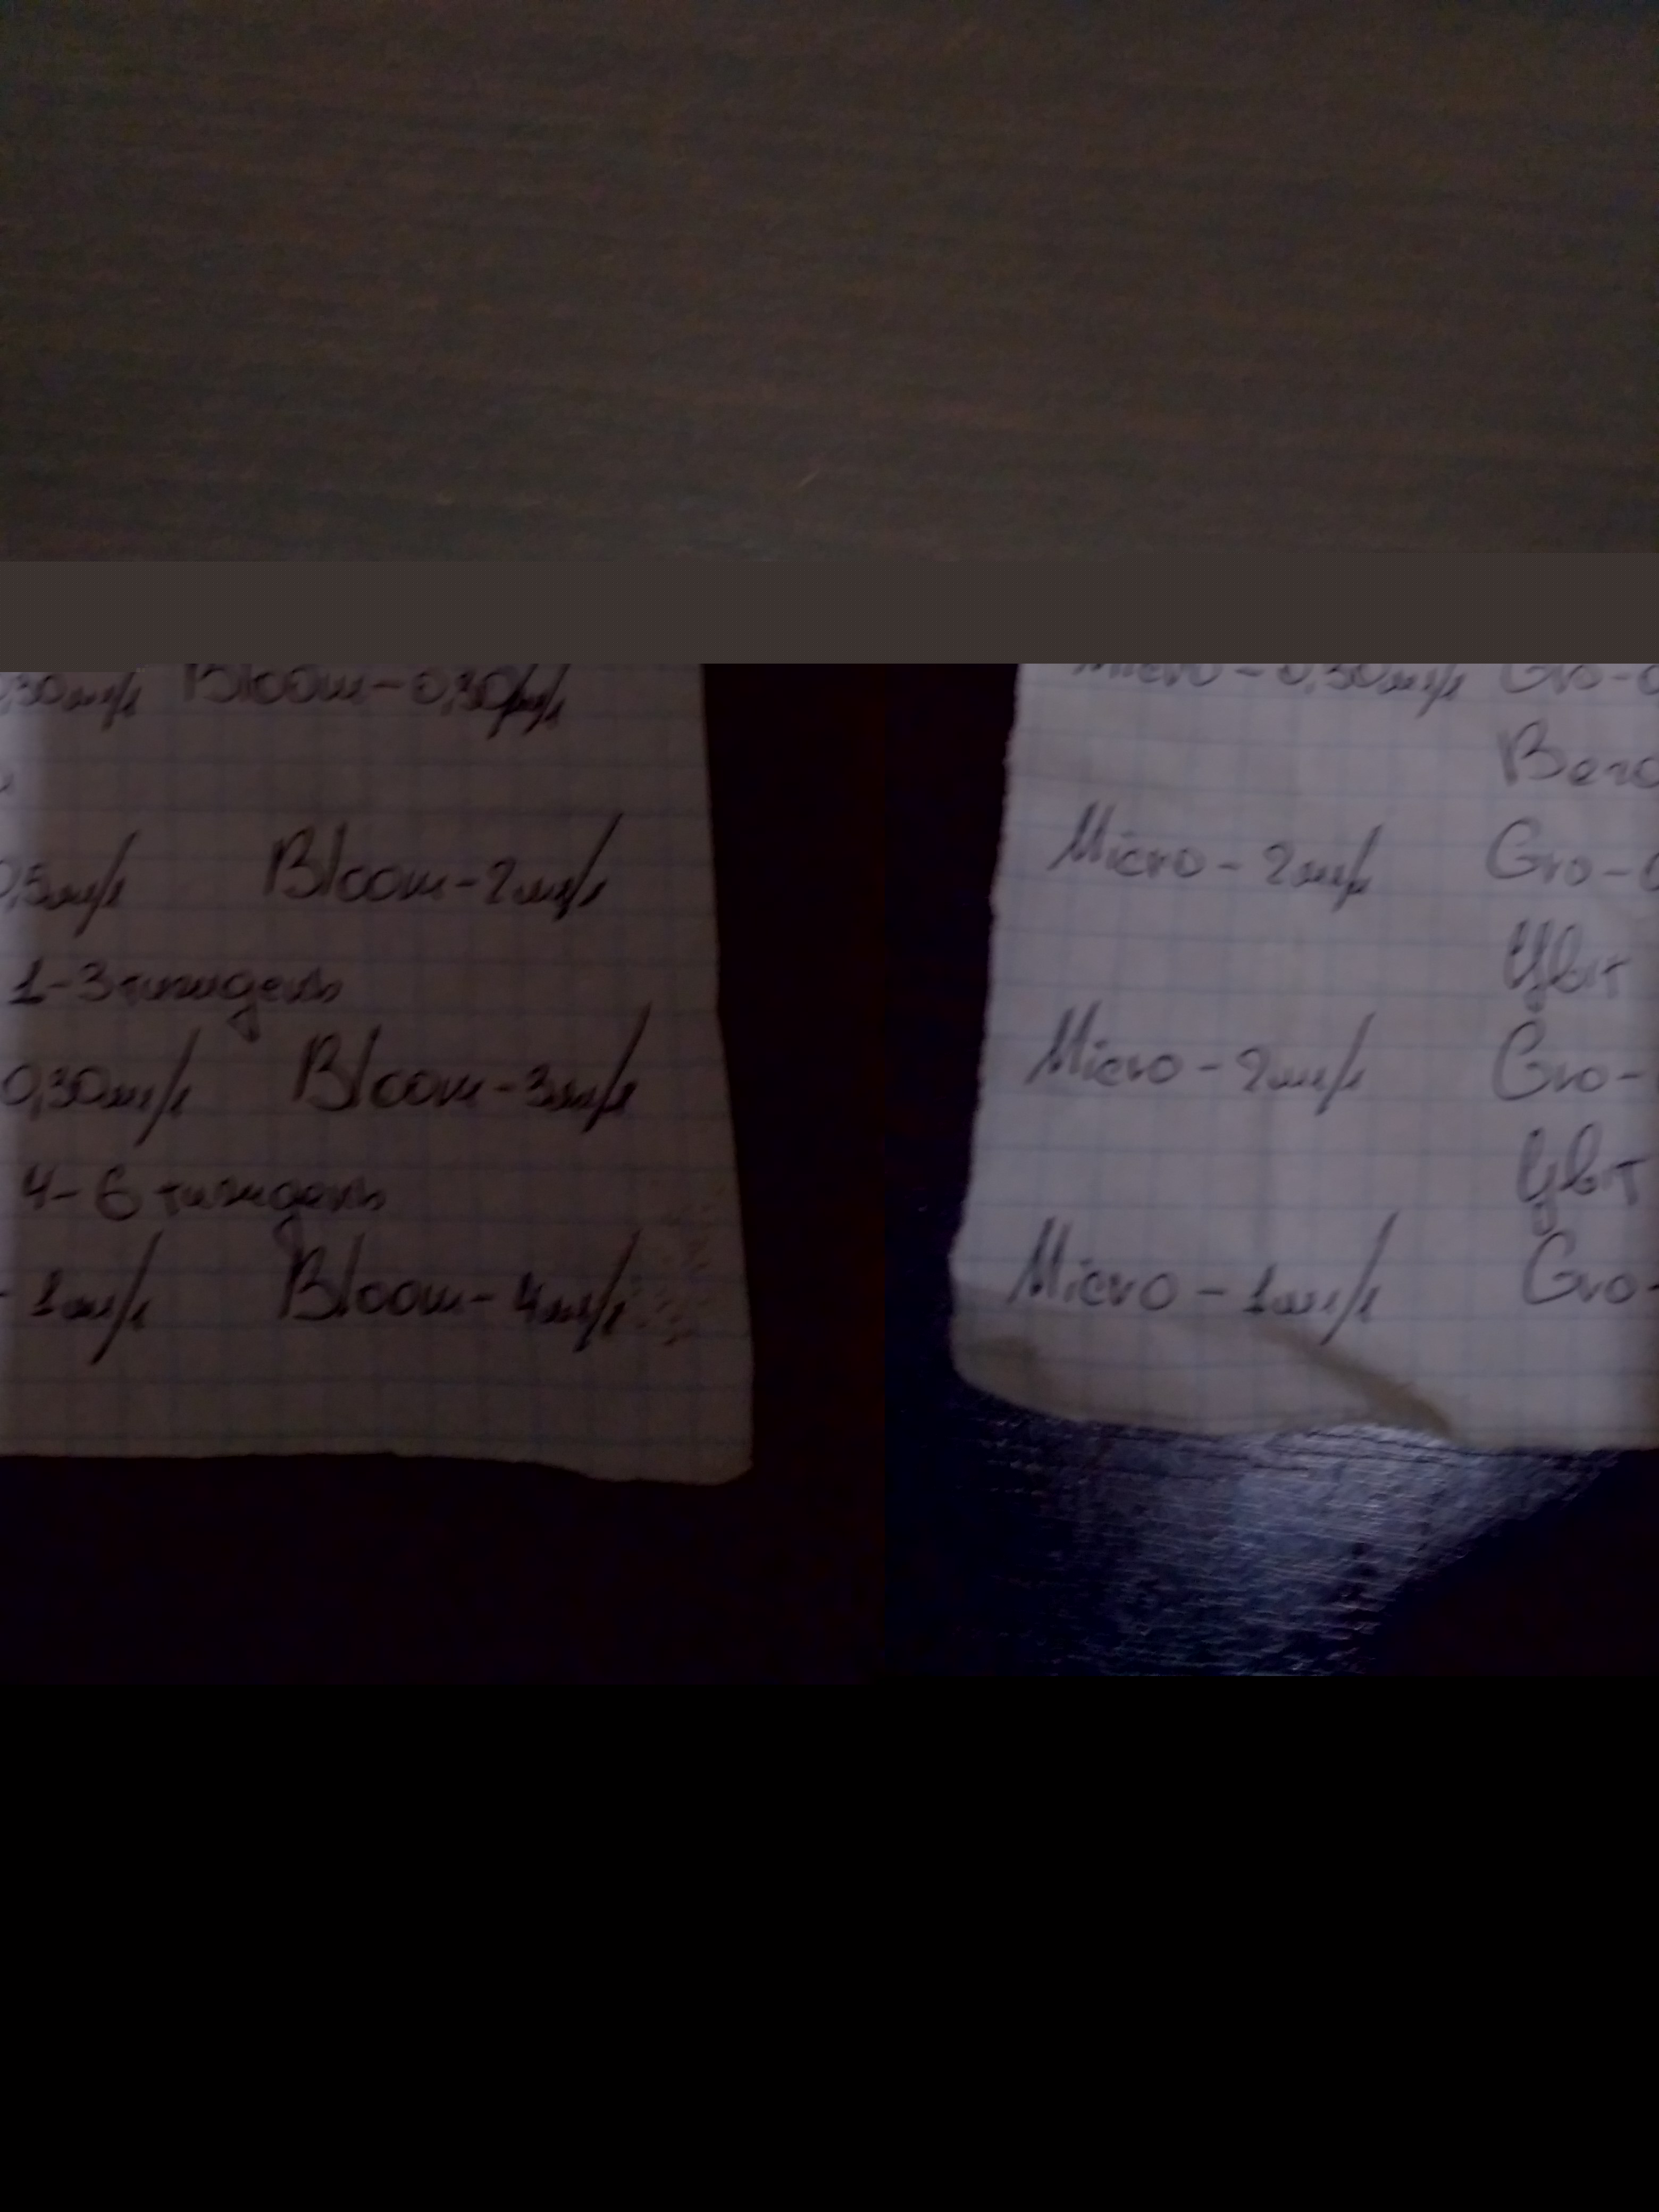 0,30мл/л Bloom-0,30мл/л
0,5мл/л Bloom-2мл/л
1-3 тиждень
0,30мл/л Bloom-3мл/л
4-6 тиждень
- 1мл/л Bloom-4мл/л
Micro-0,30мл/л Gro-0
Вега
Micro-2мл/л Gro-0
Цвіт
Micro-2мл/л Gro-
Цвіт
Micro-1мл/л Gro-